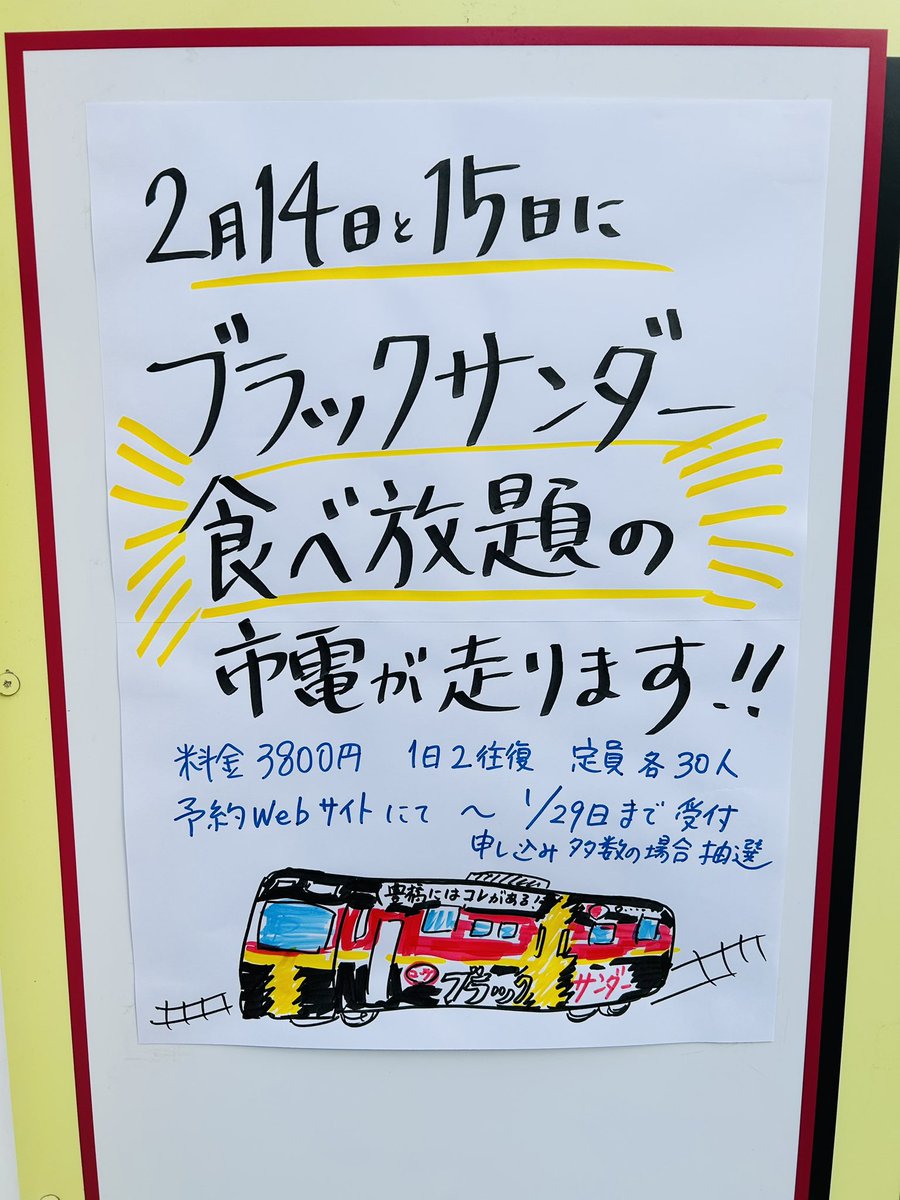 2月14日と15日に
ブラックサンダー
食べ放題の
市電が走ります!!
料金3800円 1日2往復 定員各30人
予約Webサイトにて 〜1/29日まで受付
申し込み多数の場合抽選
豊橋にはコレがある!
ブラック サンダー